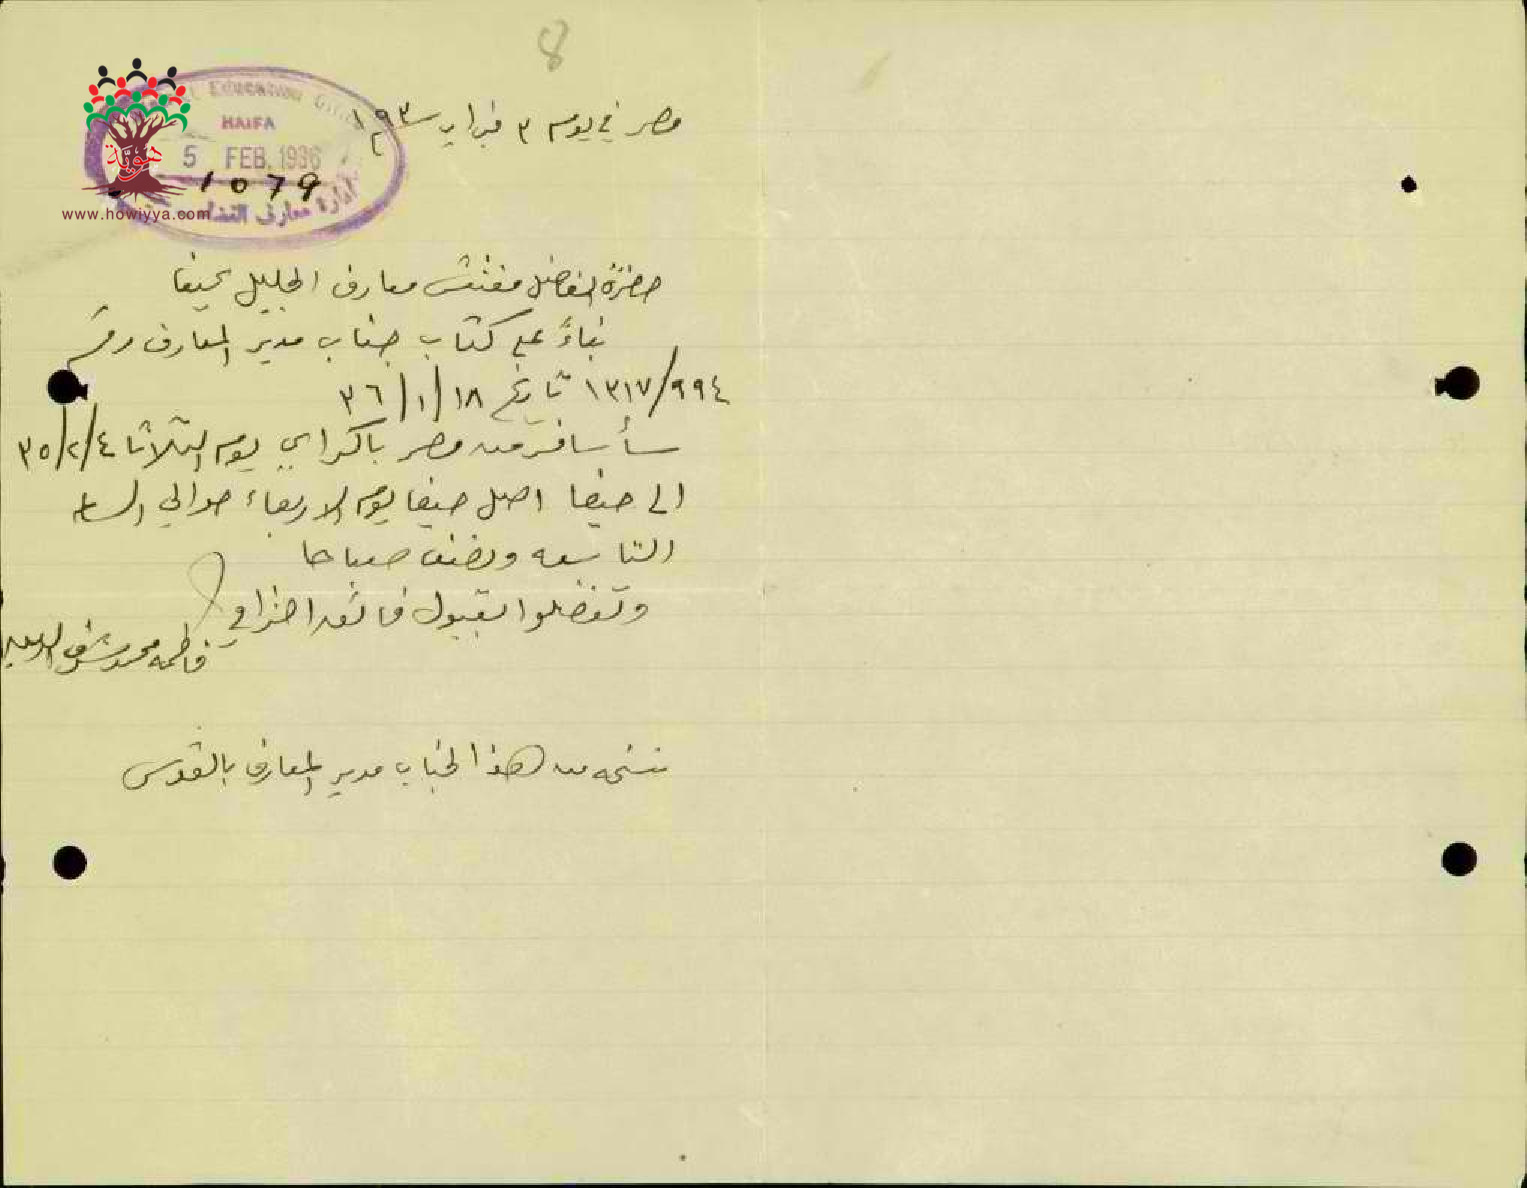 8
Education
HAIFA
5 FEB. 1936
1079
ادارة معارف القضاء
هوية
www.howiyya.com
مصر في يوم ٣ فبراير سنة
حضرة الفاضل مفتش معارف الجليل بحيفا
بناءً على كتاب جناب مدير المعارف رقم
١٣١٧/٩٩٤ تاريخ ١٨/١/٣٦
سأسافر من مصر باكر اي يوم الثلاثا ٣٥/٢/٤
الى حيفا اصل حيفا يوم الاربعاء حوالي الساعه
التاسعه ونصف صباحا
وتفضلوا بقبول فائق احترامي
فاطمه محمد شرف
نسخه من هذا لجناب مدير المعارف بالقدس